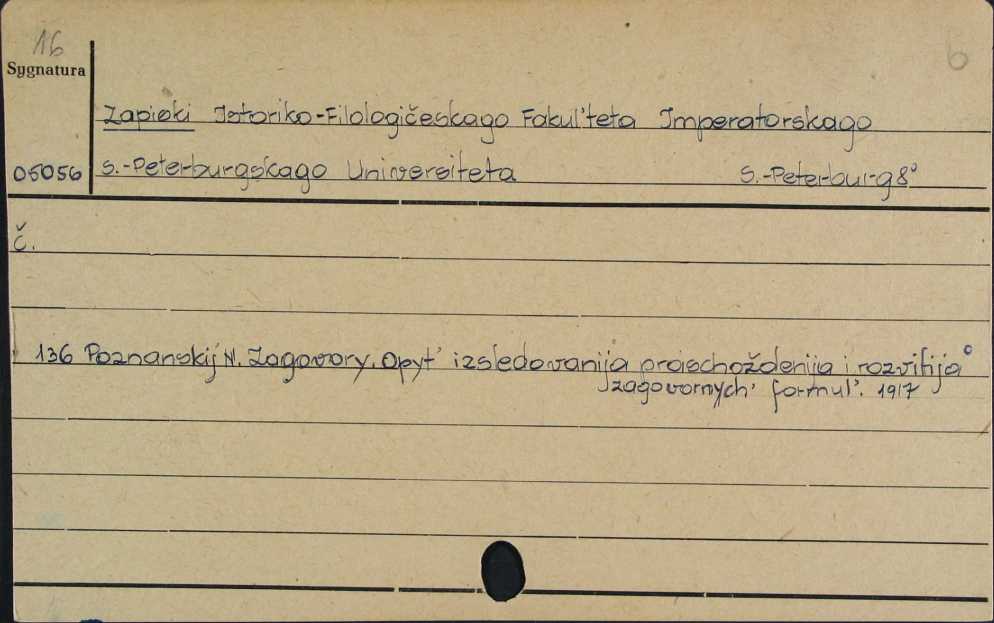 16
6
Sygnatura
Zapiski Istoriko-Filologičeskago Fakul'teta Imperatorskago
05056 S.-Peterburgskago Universiteta S.-Peterburg 8°
č.
136 Poznanskij N. Zagovory. Opyt' izsledovanija proischoždenija i rozvitija
zagovornych' formul'. 1917